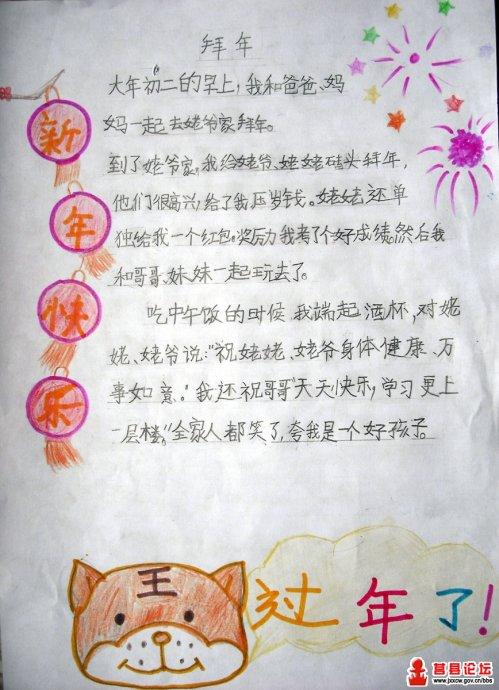 拜年
大年初二的早上,我和爸爸、妈
妈一起去姥爷家拜年。
到了姥爷家,我给姥爷、姥姥磕头拜年,
他们很高兴,给了我压岁钱。姥姥还单
独给我一个红包。奖历力我考了个好成绩然后我
和哥哥妹妹一起玩去了。
吃中午饭的时候,我端起酒杯,对姥
姥、姥爷说:“祝姥姥、姥爷身体健康、万
事如意。”我还祝哥哥“天天快乐,学习更上
一层楼。”全家人都笑了,夸我是一个好孩子。
新
年
快
乐
王
过年了!
莒县论坛
www.jxxcw.gov.cn/bbs